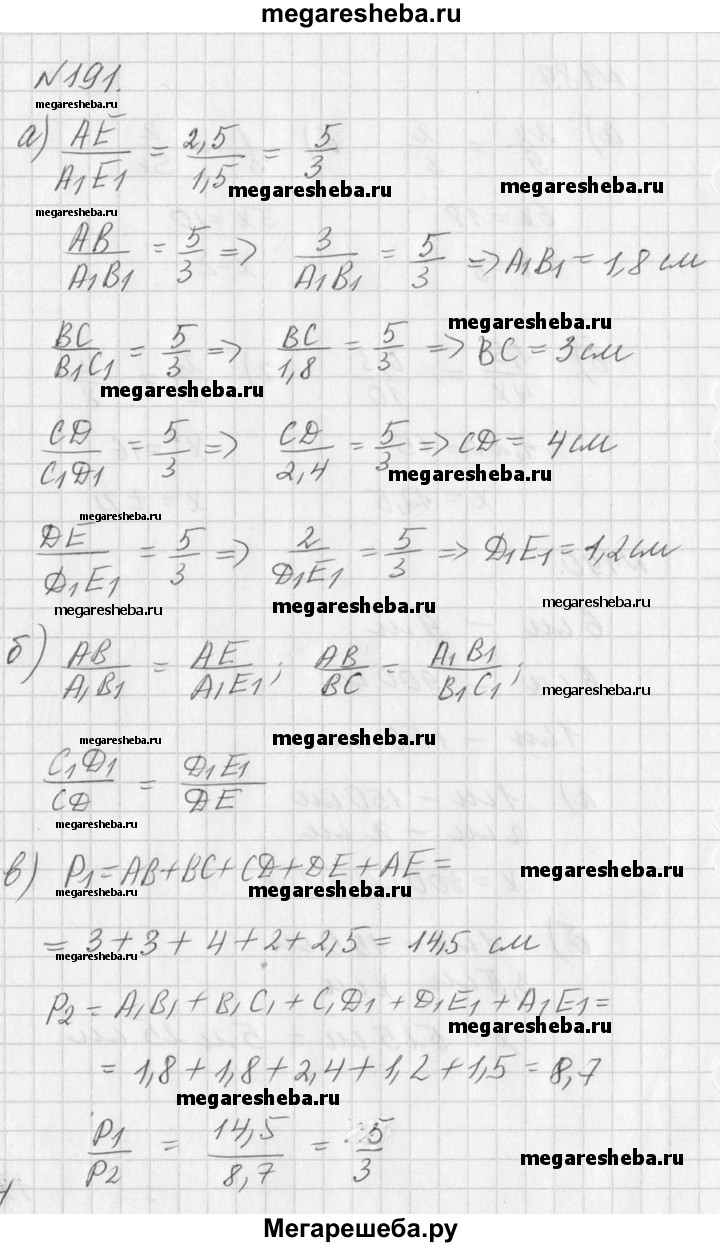 megaresheba.ru
№191.
megaresheba.ru
а) AE/A1E1 = 2,5/1,5 = 5/3
megaresheba.ru megaresheba.ru
megaresheba.ru
AB/A1B1 = 5/3 => 3/A1B1 = 5/3 => A1B1 = 1,8 см
megaresheba.ru
BC/B1C1 = 5/3 => BC/1,8 = 5/3 => BC = 3 см
megaresheba.ru
CD/C1D1 = 5/3 => CD/2,4 = 5/3 => CD = 4 см
megaresheba.ru
megaresheba.ru
DE/D1E1 = 5/3 => 2/D1E1 = 5/3 => D1E1 = 1,2 см
megaresheba.ru megaresheba.ru megaresheba.ru
б) AB/A1B1 = AE/A1E1; AB/BC = A1B1/B1C1;
megaresheba.ru
megaresheba.ru megaresheba.ru
C1D1/CD = D1E1/DE
megaresheba.ru
в) P1 = AB + BC + CD + DE + AE =
megaresheba.ru megaresheba.ru megaresheba.ru
= 3 + 3 + 4 + 2 + 2,5 = 14,5 см
megaresheba.ru
P2 = A1B1 + B1C1 + C1D1 + D1E1 + A1E1 =
megaresheba.ru
= 1,8 + 1,8 + 2,4 + 1,2 + 1,5 = 8,7
megaresheba.ru
P1/P2 = 14,5/8,7 = 5/3
megaresheba.ru
Мегарешеба.ру